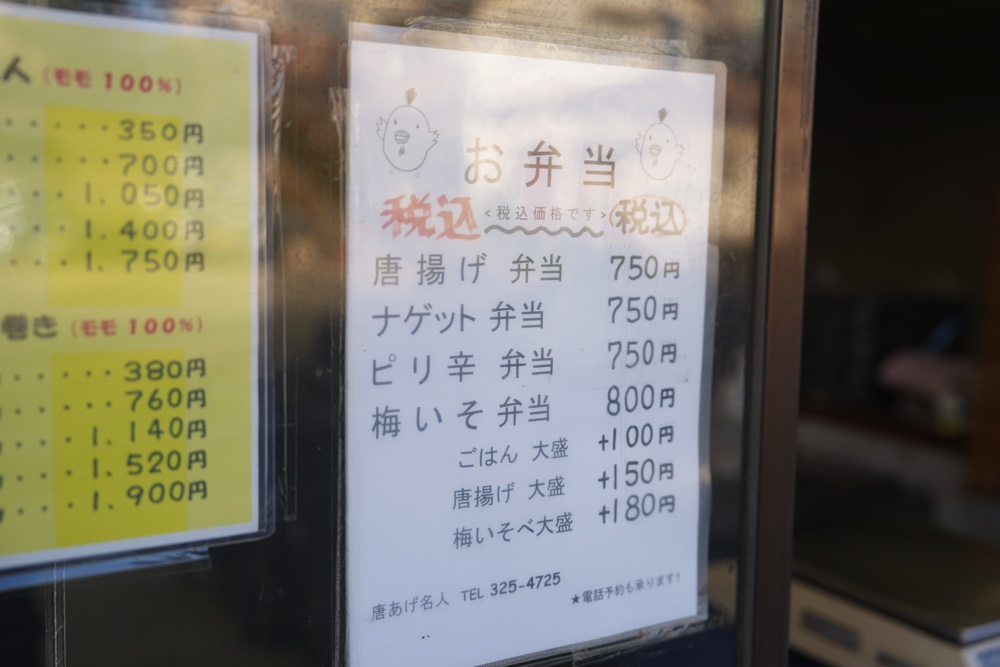 人（モモ 100%）
350円
700円
1.050円
1.400円
1.750円
巻き（モモ 100%）
380円
760円
1.140円
1.520円
1.900円
お弁当
税込 <税込価格です> 税込
唐揚げ 弁当 750円
ナゲット 弁当 750円
ピリ辛 弁当 750円
梅いそ 弁当 800円
ごはん 大盛 +100円
唐揚げ 大盛 +150円
梅いそべ大盛 +180円
唐あげ名人 TEL 325-4725
★電話予約も承ります!